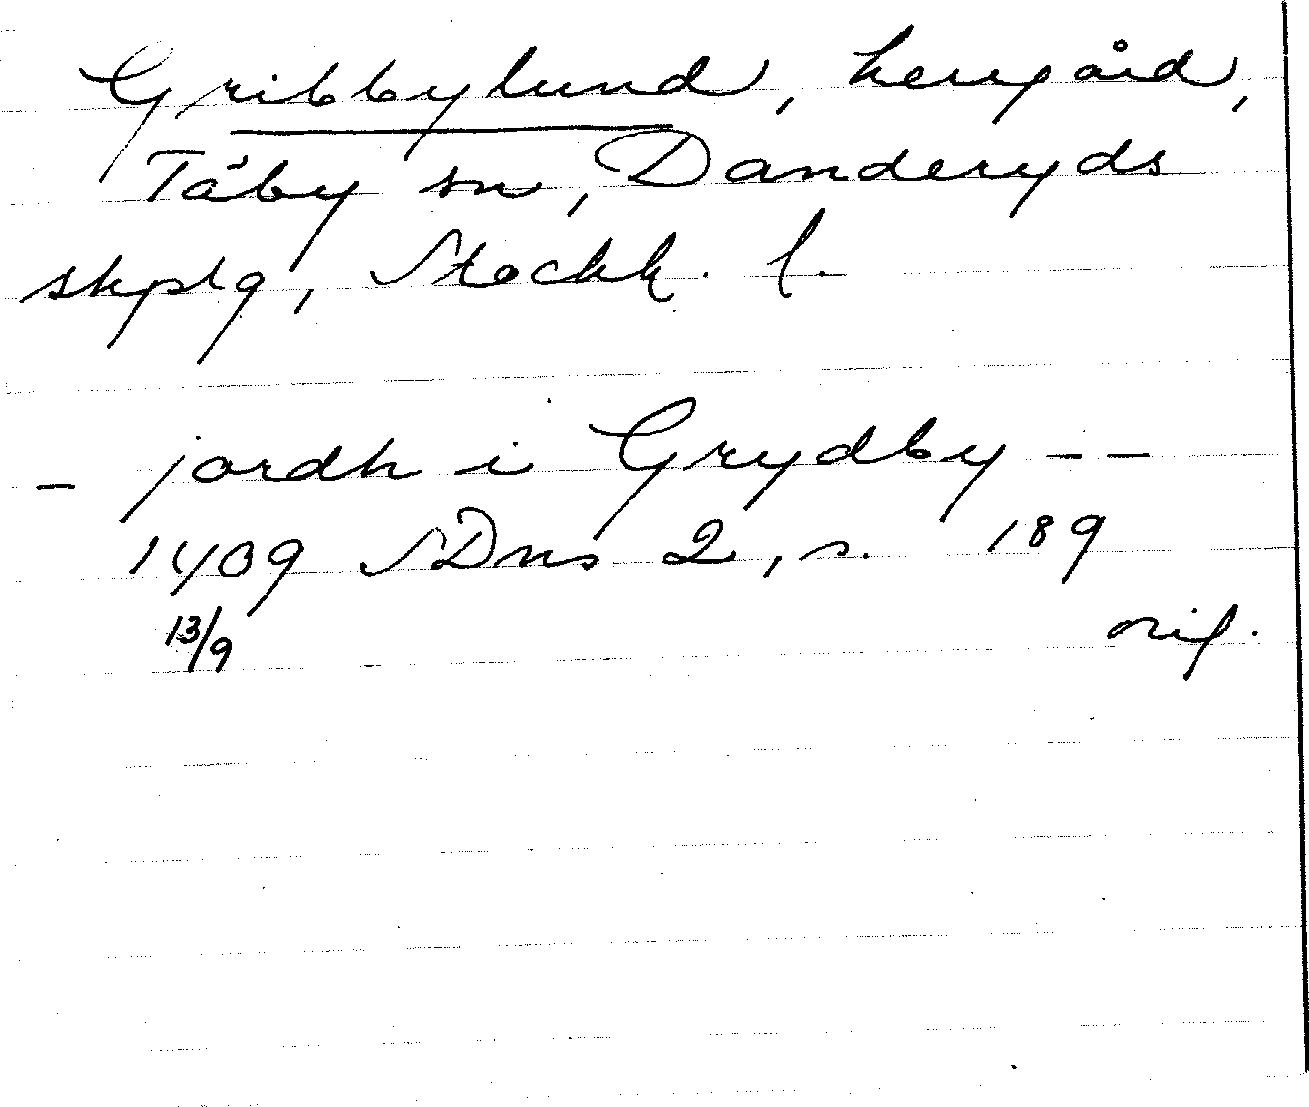 Gribbylund, herrgård,
Täby sn, Danderyds
skplg, Stockh. l.
- jordh i Grydby - -
1409 SDns 2, s. 189
13/9 orig.